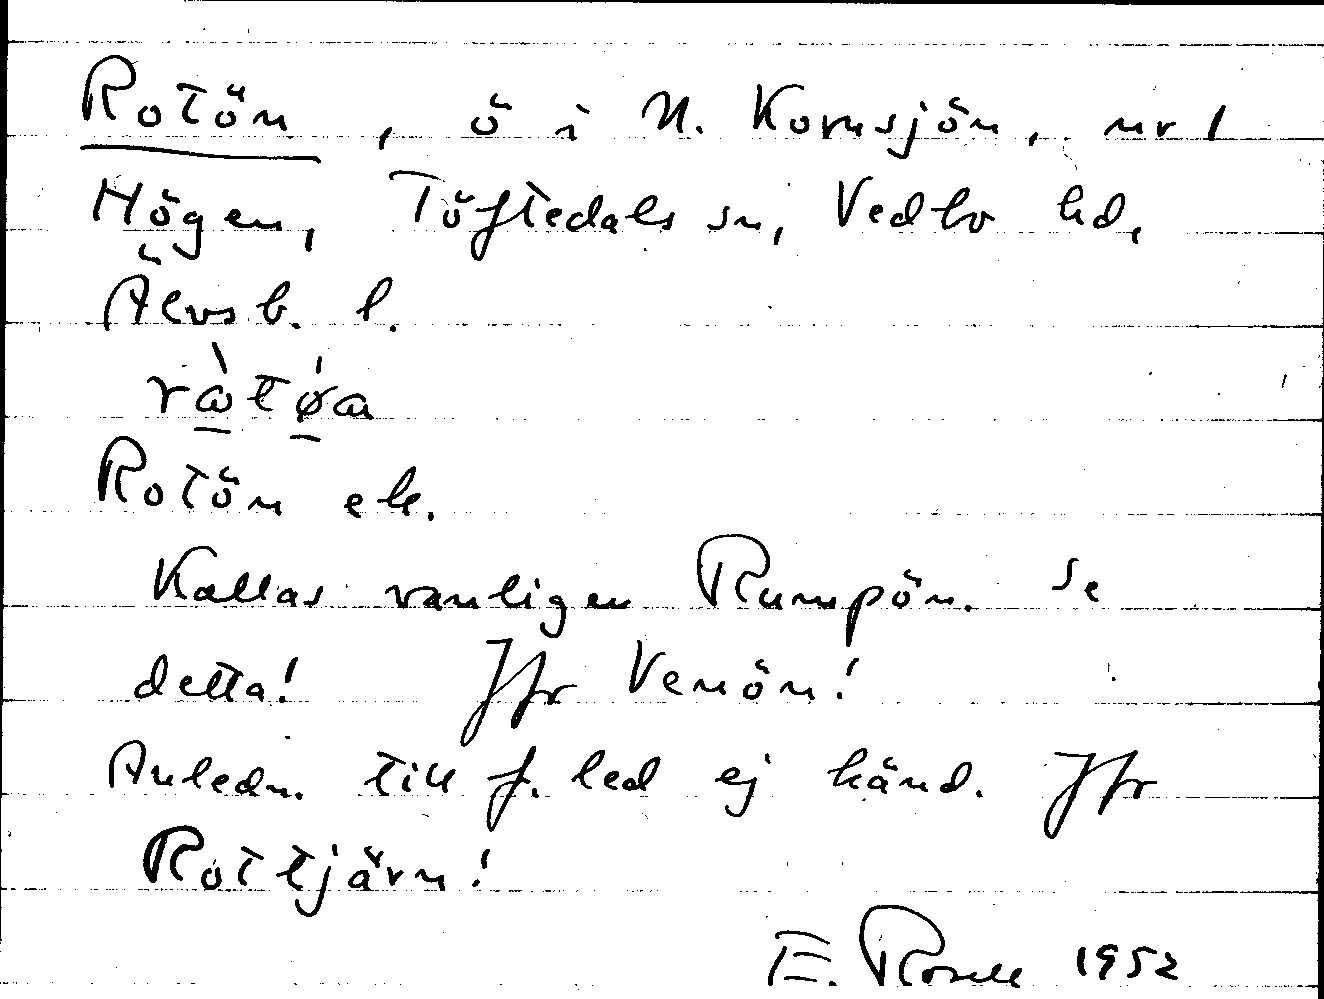 Rotön, ö i N. Kornsjön, nr 1
Högen, Töftedals sn, Vedbo hd,
Älvsb. l.
Rotön ek.
Kallas vanligen Rumpön. Se
detta! Jfr Venön!
Anledn. till f. led ej känd. Jfr
Rottjärn!
E. Rosell 1952